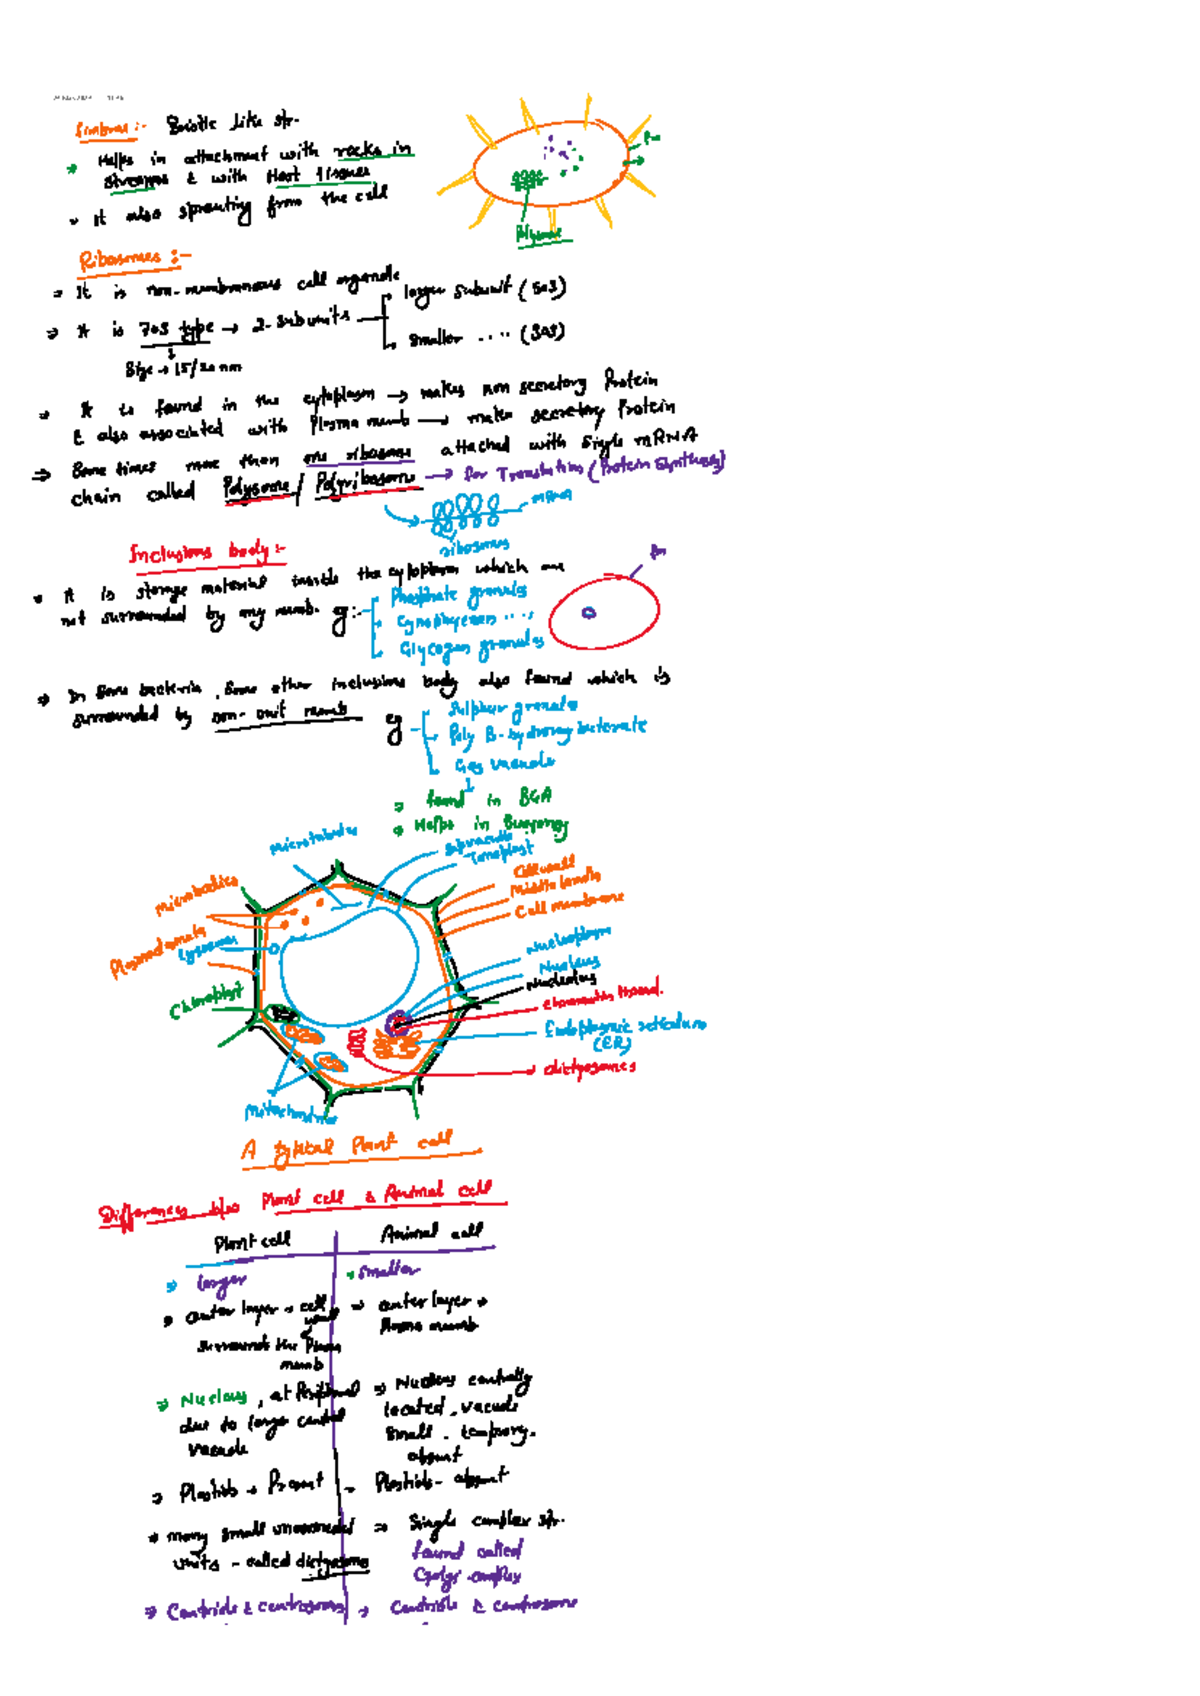 Fimbriae :- Bristle like str.
→ Helps in attachment with rocks in
streams & with Host tissues
It also sprouting from the cell
Pm
Polysome
Ribosomes :-
→ It is non-membranous cell organelle
→ It is 70S type → 2-subunits
larger subunit (50S)
smaller .... (30S)
Size → 15/20 nm
→ It is found in the cytoplasm → makes non secretory Protein
& also associated with Plasma memb → makes secretory Protein
⇒ Some times more than one ribosome attached with single mRNA
chain called Polysome / Polyribosome → for Translation (Protein Synthesis)
mRNA
ribosomes
Inclusions body :-
It is storage material inside the cytoplasm which are
not surrounded by any memb. eg:-
Phosphate granules
Cynophycean ....
Glycogen granules
Pm
→ In Some bacteria, Some other inclusions body also found which is
surrounded by non-unit memb eg
Sulphur granules
Poly B-hydroxy butarate
Gas vacuole
→ found in BGA
→ Helps in Buoyancy
Microtubules
Tonoplast
Microbodies
Cell wall
Middle lamella
Cell membrane
Plasmodesmata
Lysosomes
Nucleoplasm
Nucleus
Nucleolus
Chloroplast
Chromatin thread.
Endoplasmic reticulum
(ER)
dictyosomes
Mitochondria
A typical Plant cell
Differences b/w Plant cell & Animal cell
Plant cell
Animal cell
→ larger
→ smaller
→ outer layer → cell wall
surrounds the Plasma
memb
→ outer layer →
Plasma memb
→ Nucleus, at Peripheral
due to large central
vacuole
→ Nucleus centrally
located. vacuole
small. temporary.
absent
→ Plastids → Present
→ Plastids - absent
→ many small unconnected
units - called dictyosome
→ Single complex str.
found called
Golgi complex
→ Centriole & centrosome
→ Centriole & centrosome